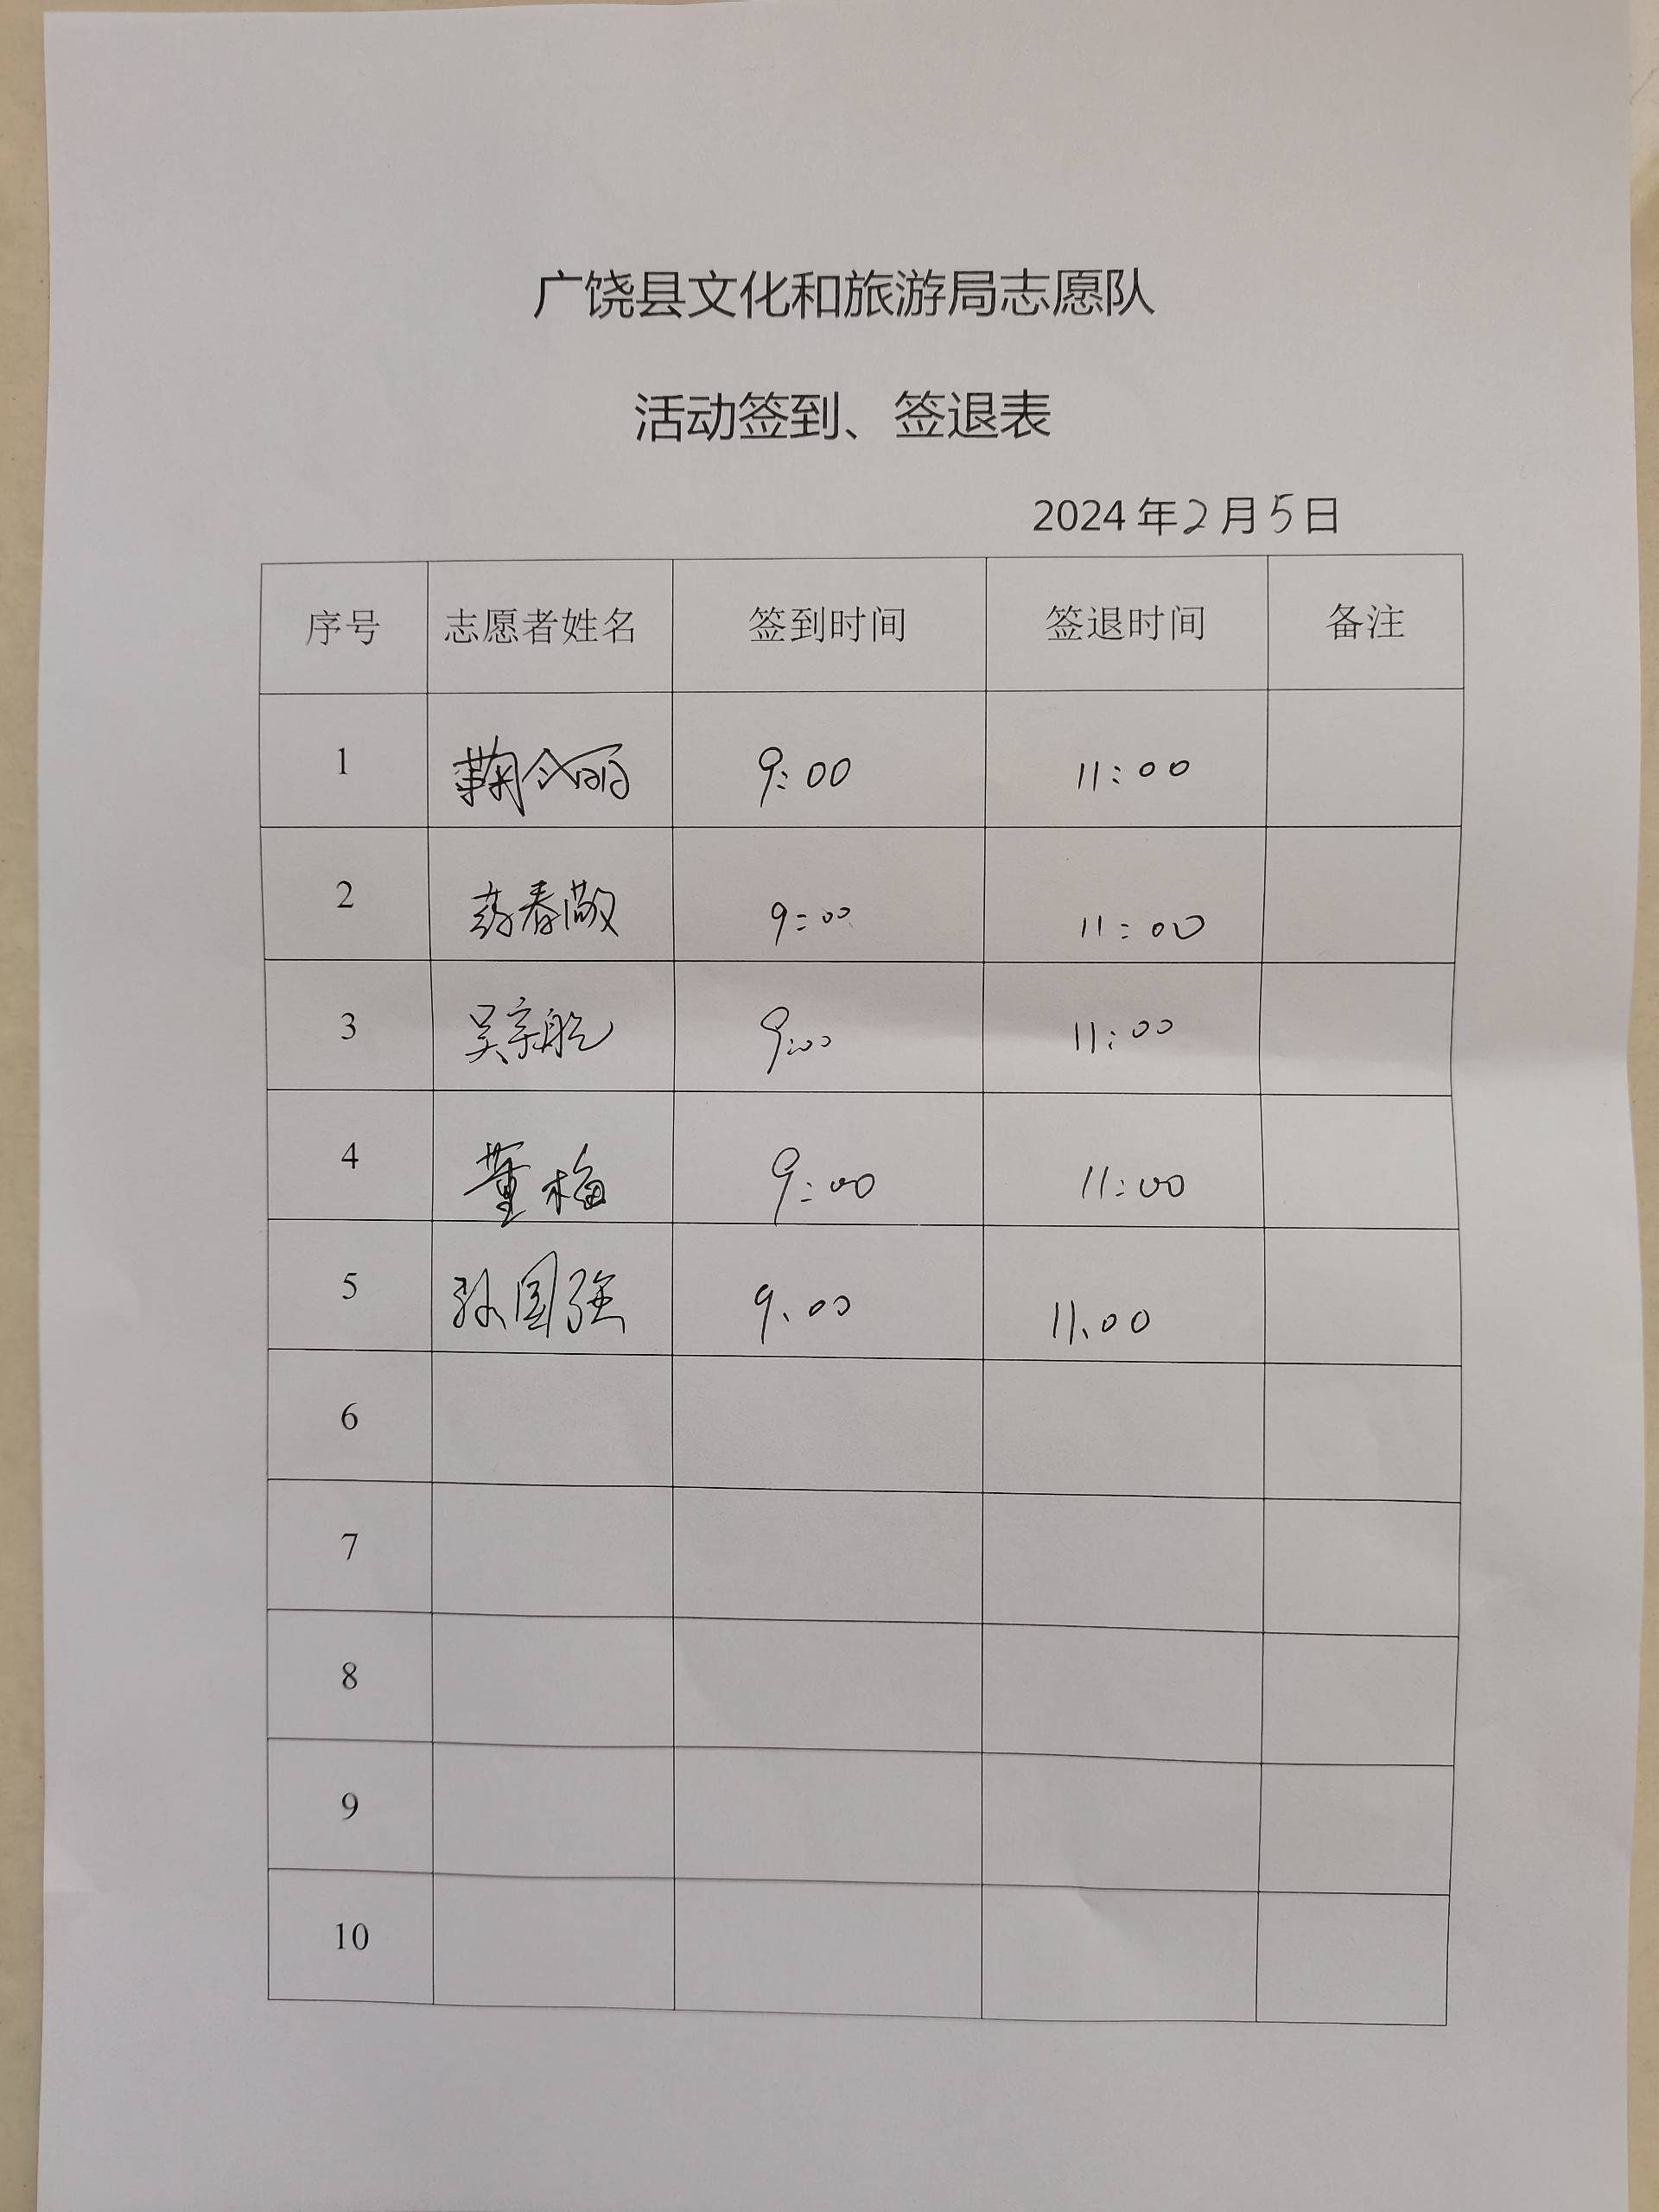 广饶县文化和旅游局志愿队
活动签到、签退表
2024年2月5日
序号 志愿者姓名 签到时间 签退时间 备注
1 9:00 11:00
2 9:00 11:00
3 9:00 11:00
4 董梅 9:00 11:00
5 孙国强 9.00 11.00
6
7
8
9
10